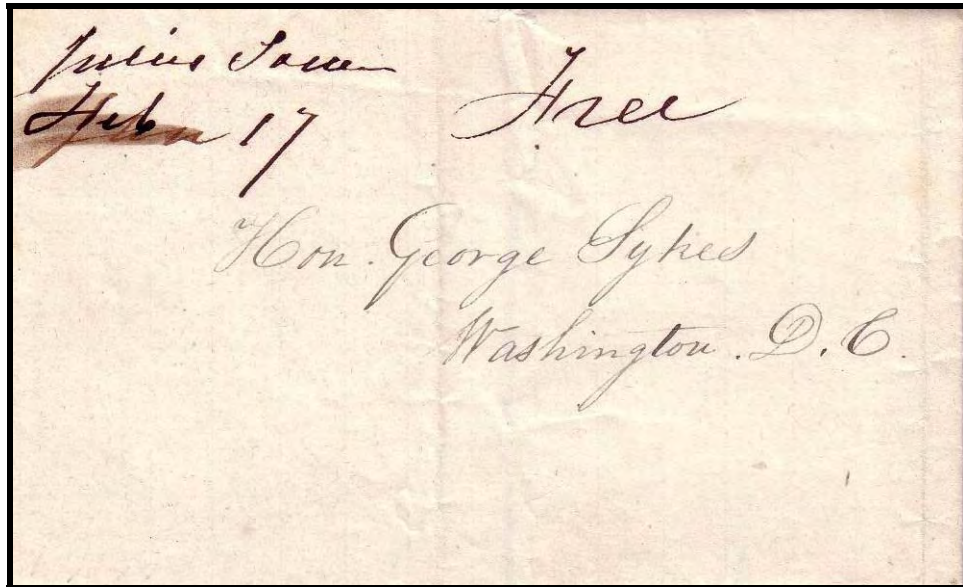 Julius Town Free
Feb 17
Hon. George Sykes
Washington. D. C.